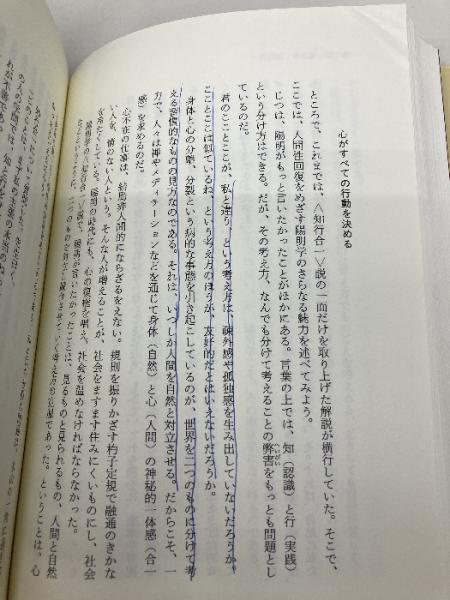 心がすべての行動を決める
ところで、これまでは、〈知行合一〉説の一面だけを取り上げた解説が横行していた。そこで、
ここでは、人間性回復をめざす陽明学のさらなる魅力を述べてみよう。
じつは、陽明がもっと言いたかったことがほかにある。言葉の上では、知（認識）と行（実践）
という分け方はできる。だが、その考え方、なんでも分けて考えることの弊害をもっとも問題とし
ているのだ。
君のこことここが、私と違う、という考え方は、疎外感や孤独感を生み出していないだろうか。
こことここは似ているね、という考え方のほうが、友好的だとはいえないだろうか。
身体と心の分離、分裂という病的な事態を引き起こしているのが、世界を二つのものに分けて考
える習慣的なものの見方なのである。それは、いつしか人間を自然と対立させる。だからこそ、一
方で、人々は禅やメディテーションなどを通じて身体（自然）と心（人間）の神秘的一体感（合一
感）を求めるのだ。
心不在の仕事は、結局非人間的にならざるをえない。規則を振りかざす杓子定規で融通のきかな
い人を、情のない人という。そんな人が増えることが、社会をますます住みにくいものにし、社会
を冷たくしている。陽明の時代にも、心の復権を唱え、社会を温めなければならなかった。
陽明学の〈知行合一〉説で、陽明が言いたかったことは、見るものと見られるもの、人間と自然